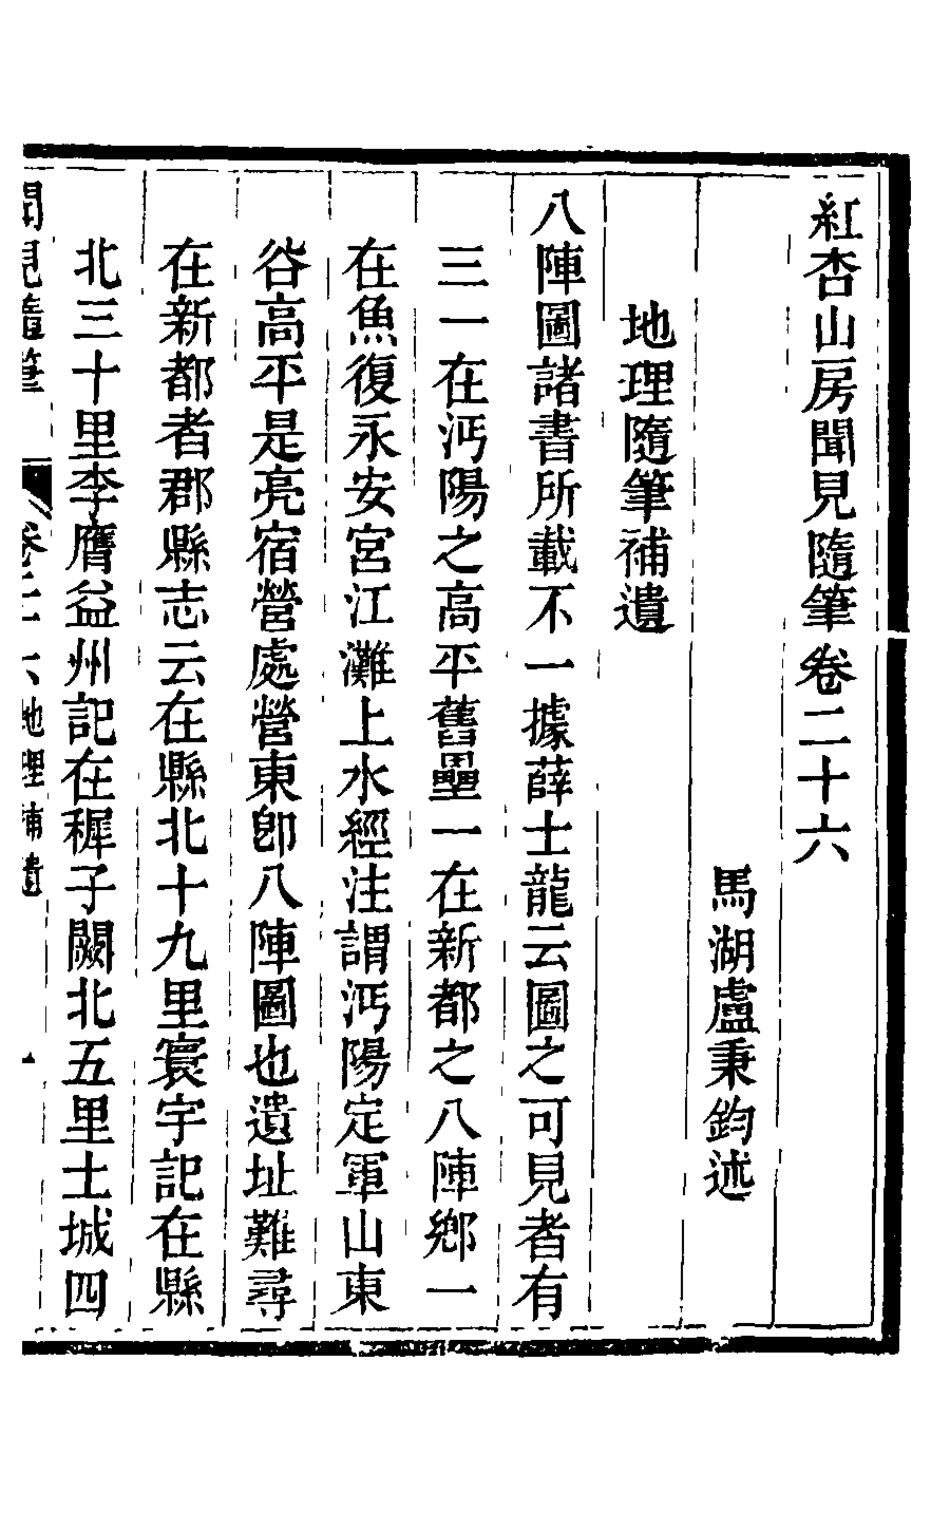 紅杏山房聞見隨筆卷二十六
馬湖盧秉鈞述
地理隨筆補遺
八陣圖諸書所載不一據薛士龍云圖之可見者有
三一在沔陽之高平舊壘一在新都之八陣鄉一
在魚復永安宮江灘上水經注謂沔陽定軍山東
谷高平是亮宿營處營東卽八陣圖也遺址難尋
在新都者郡縣志云在縣北十九里寰宇記在縣
北三十里李膺益州記在稚子闕北五里土城四
聞見隨筆 卷二十六 地理補遺 一